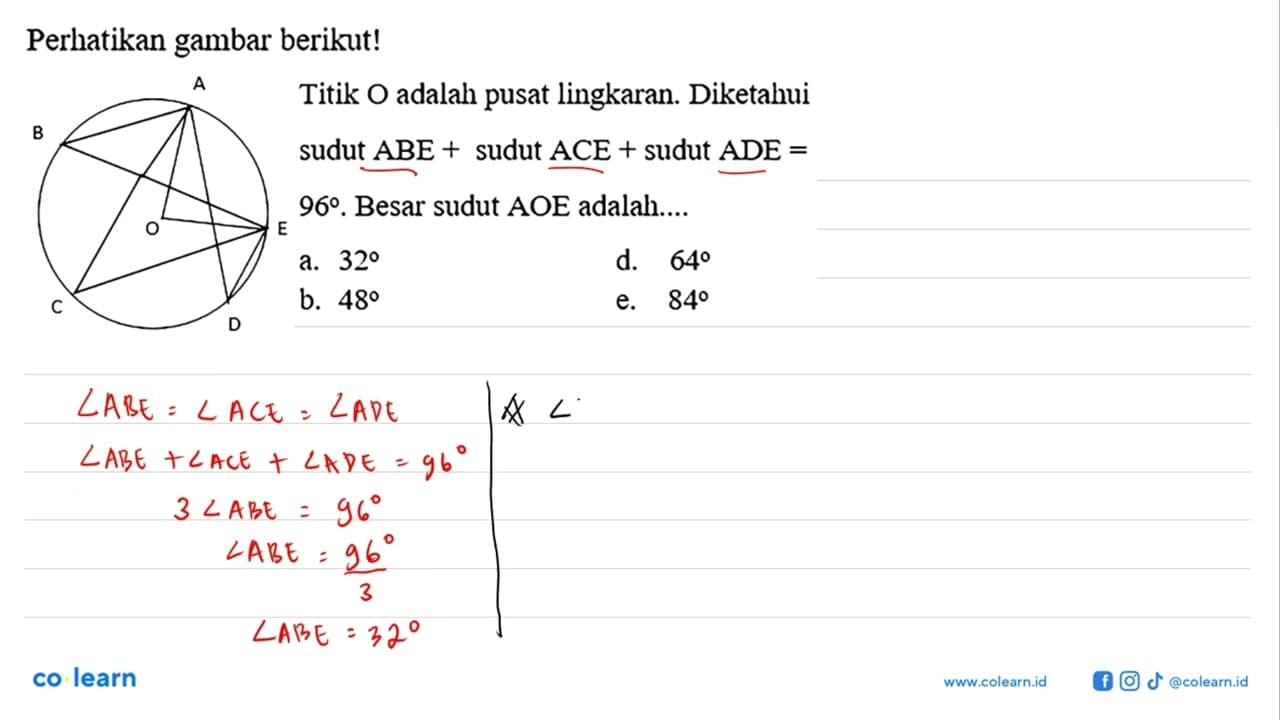 Perhatikan gambar berikut!
A
B
O
E
C
D
Titik O adalah pusat lingkaran. Diketahui
sudut ABE + sudut ACE + sudut ADE =
96°. Besar sudut AOE adalah....
a. 32° d. 64°
b. 48° e. 84°
∠ABE = ∠ACE = ∠ADE
∠ABE + ∠ACE + ∠ADE = 96°
3 ∠ABE = 96°
∠ABE = 96°
3
∠ABE = 32°
∠
co learn
www.colearn.id
@colearn.id